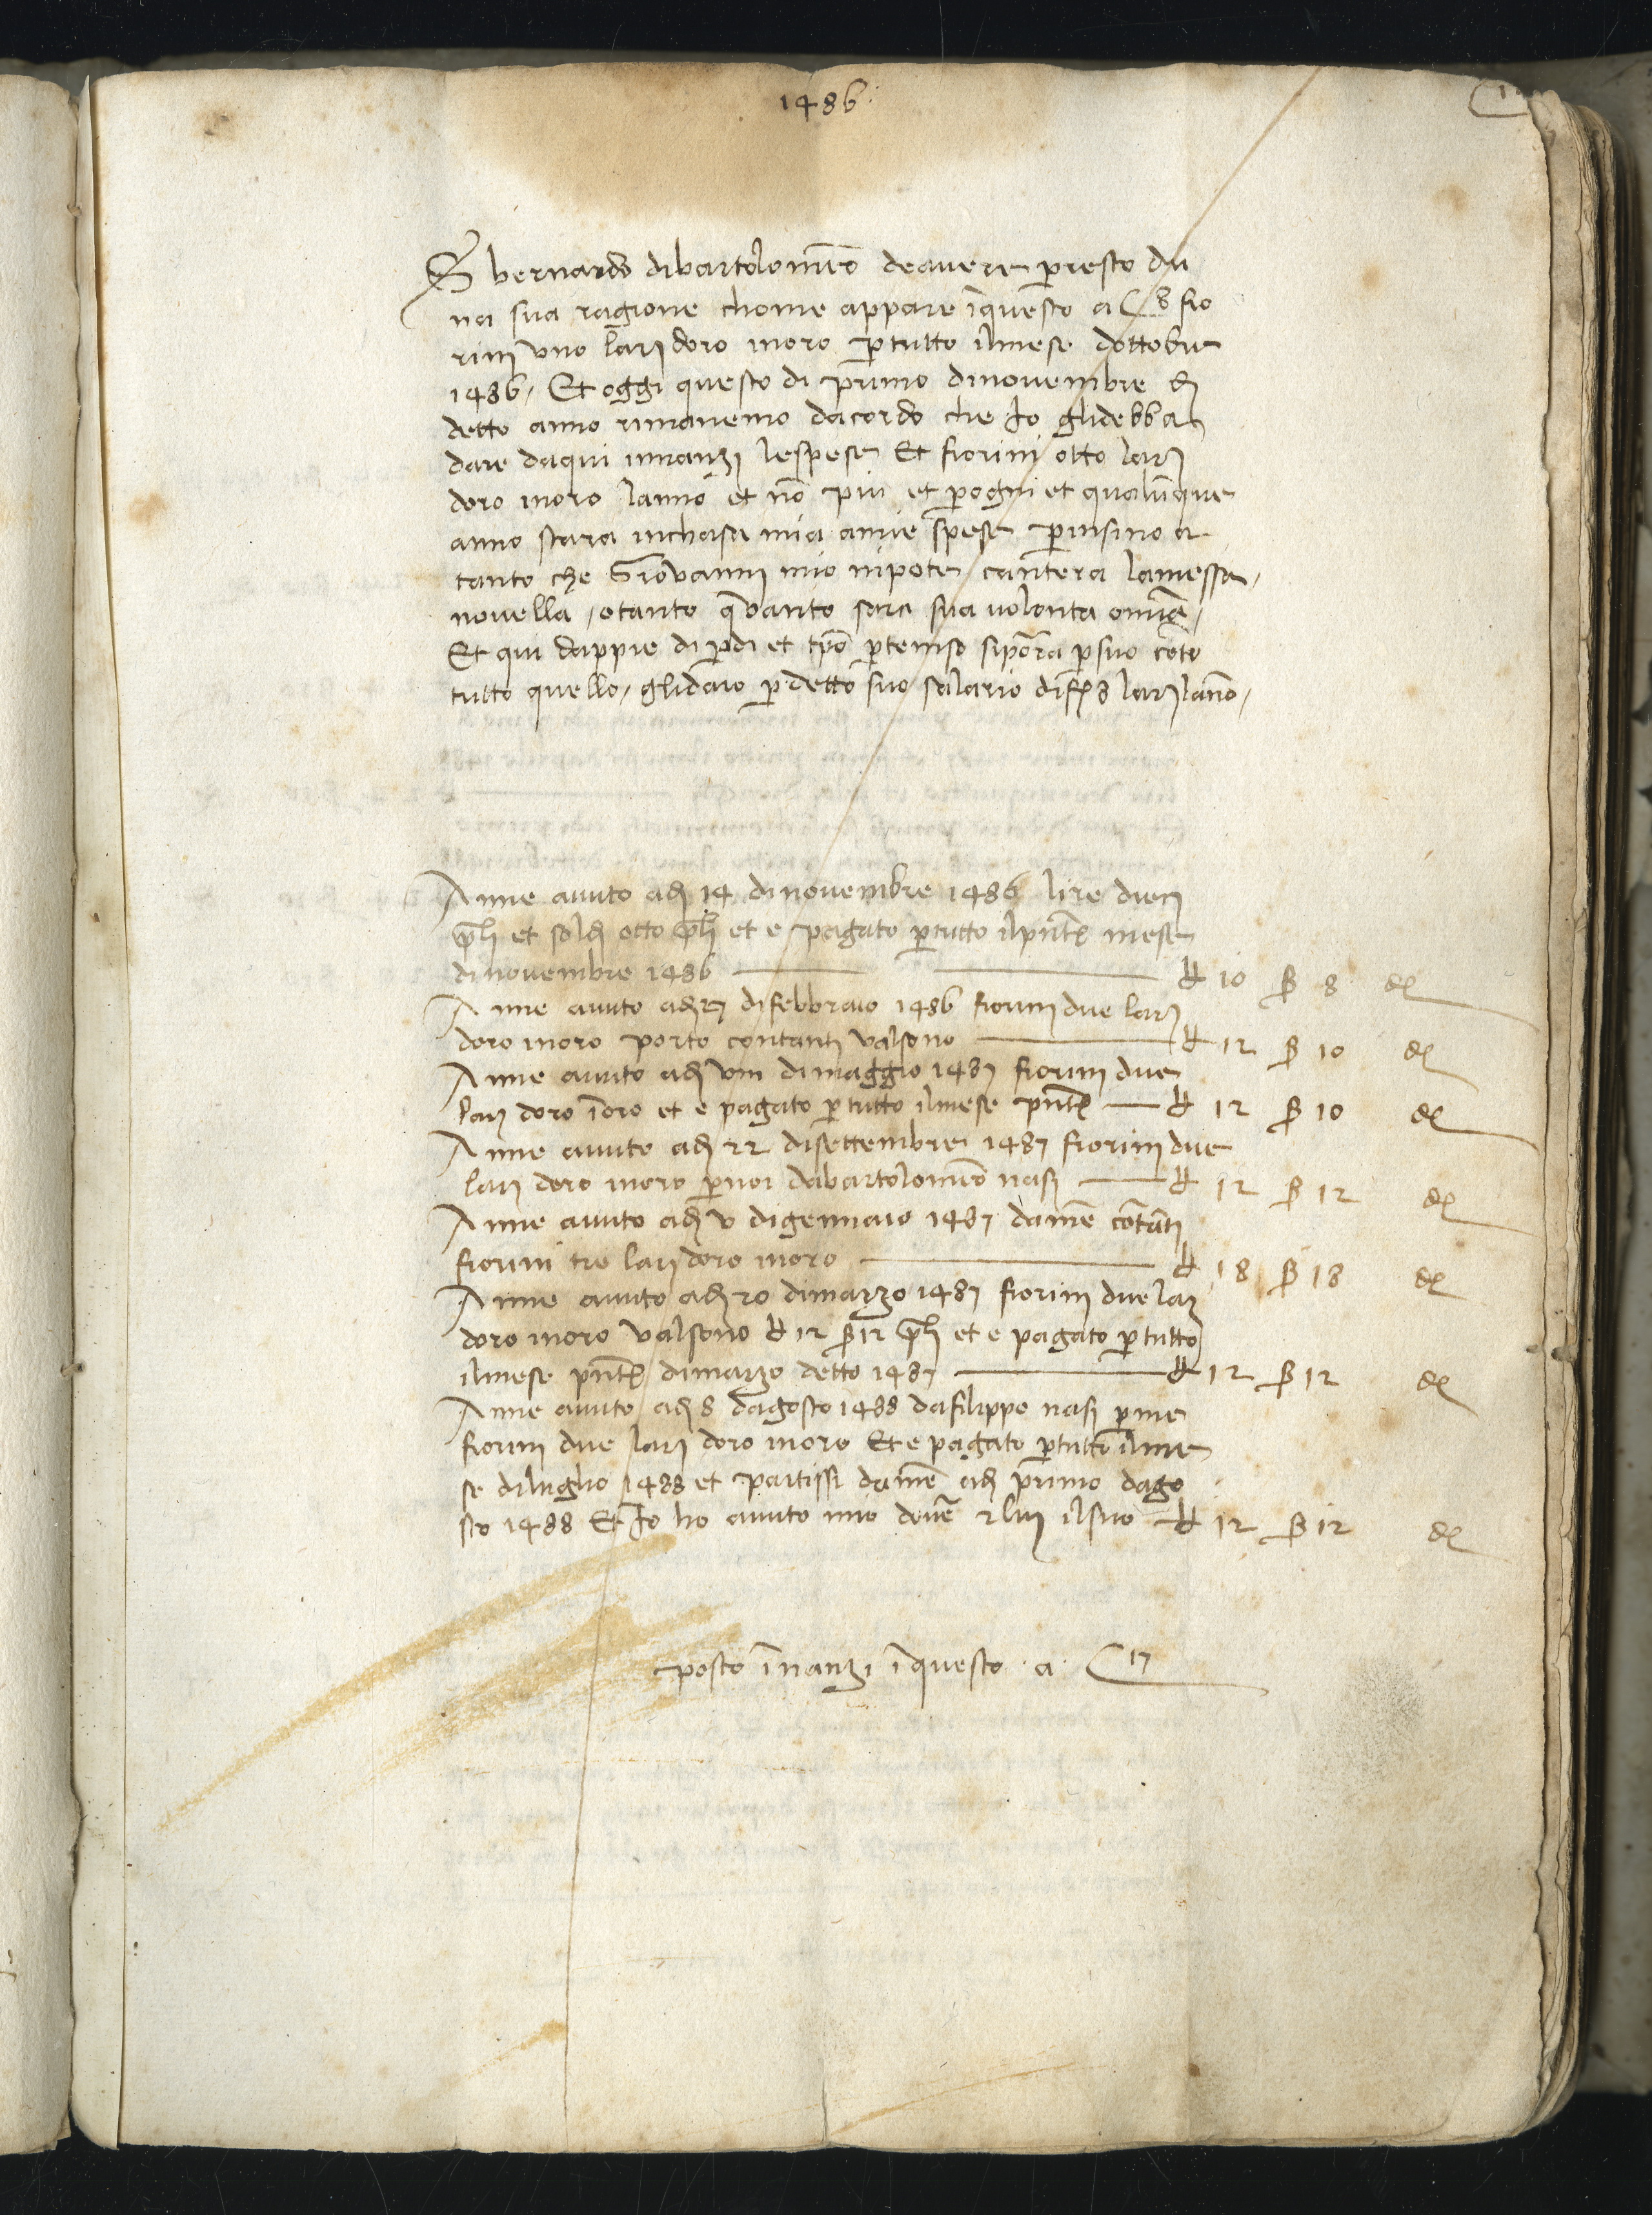 1486
S bernardo dibartolomeo deavere p resto du
na sua ragione chome appare i questo a c 8 fio
rini uno larj doro inoro p tutto ilmese dottobre
1486. Et oggi questo di primo dinovembre dj
detto anno rimanemo dacordo che Io glidebba
dare daqui innanzi lespese Et fiorini otto larj
doro inoro lanno et nō piu et p ogni et qualūque
anno stara inchasa mia amie spese p insino a
tanto che Giovanni mio nipote cantera lamessa
novella, otanto quanto sara sua volonta omiā,
Et qui dappie di p di et tpō p tempo siporra p suo cōto
tutto quello, glidaro p detto suo salario di f 8 larj lāno,
Anne auuto adj 14 dinovembre 1486 lire diecj
pli et soldj otto pli et e pagato p tutto ilpntε mese
dinovembre 1486 — ₶ 10 ß 8 d
Anne auuto adj 27 difebbraio 1486 fiorini due larj
doro inoro porto contantj valsono — ₶ 12 ß 10 d
Anne auuto adj viii dimaggio 1487 fiorini due
larj doro ioro et e pagato p tutto ilmese pntε — ₶ 12 ß 10 d
Anne auuto adj 22 disettembre 1487 fiorini due
larj doro inoro p noi dabartolomeo nasj — ₶ 12 ß 12 d
Anne auuto adj v digennaio 1487 dame cōtātj
fiorini tre larj doro inoro — ₶ 18 ß 18 d
Anne auuto adj 20 dimarzo 1487 fiorini due larj
doro inoro valsono ₶ 12 ß 12 pli et e pagato p tutto
ilmese pntε dimarzo detto 1487 — ₶ 12 ß 12 d
Anne auuto adj 8 dagosto 1488 dafilippo nasj p me
fiorini due larj doro inoro Et e pagato p tutto ilme
se diluglio 1488 et partissi dame adj primo dago
sto 1488 Et Io ho auuto mio dovē e luj ilsuo — ₶ 12 ß 12 d
posto īnanzi ī questo a c 17